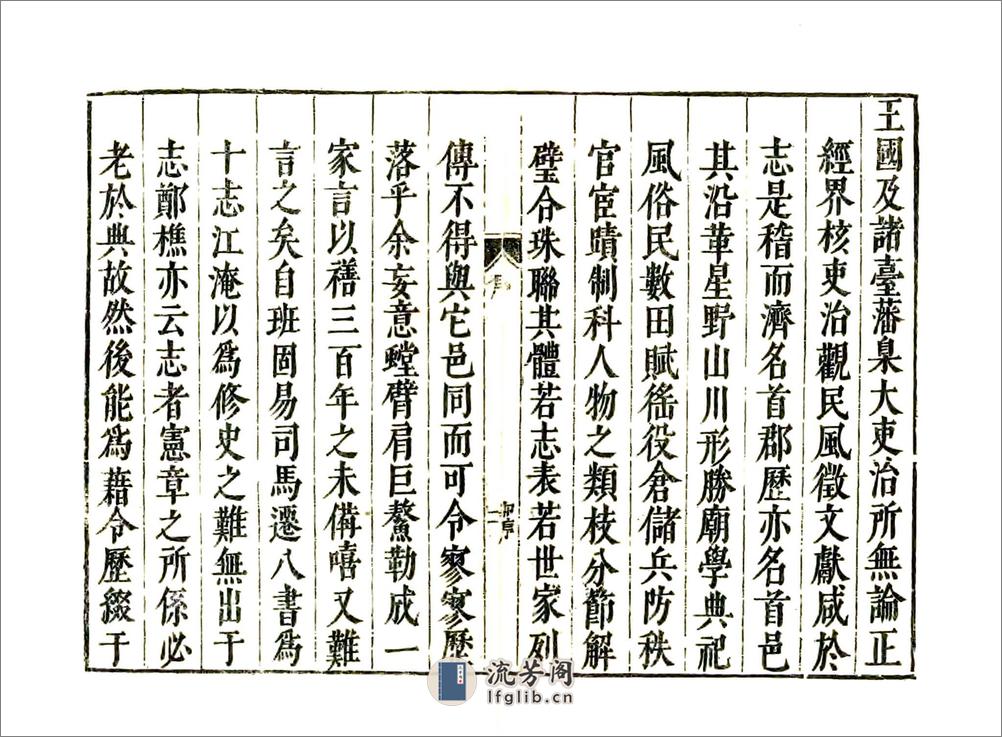 王國及諸臺藩臬大吏治所無論正
經界核吏治觀民風徵文獻咸於
志是稽而濟名首郡歷亦名首邑
其沿革星野山川形勝廟學典祀
風俗民數田賦徭役倉儲兵防秩
官宦蹟制科人物之類枝分節解
璧合珠聯其體若志表若世家列
傳不得與它邑同而可令寥寥歷
落乎余妄意螳臂肩巨鰲勒成一
家言以禱三百年之未備嘻又難
言之矣自班固易司馬遷八書為
十志江淹以為修史之難無出于
志鄭樵亦云志者憲章之所係必
老於典故然後能為藉令歷綴于
流芳阁
lfglib.cn